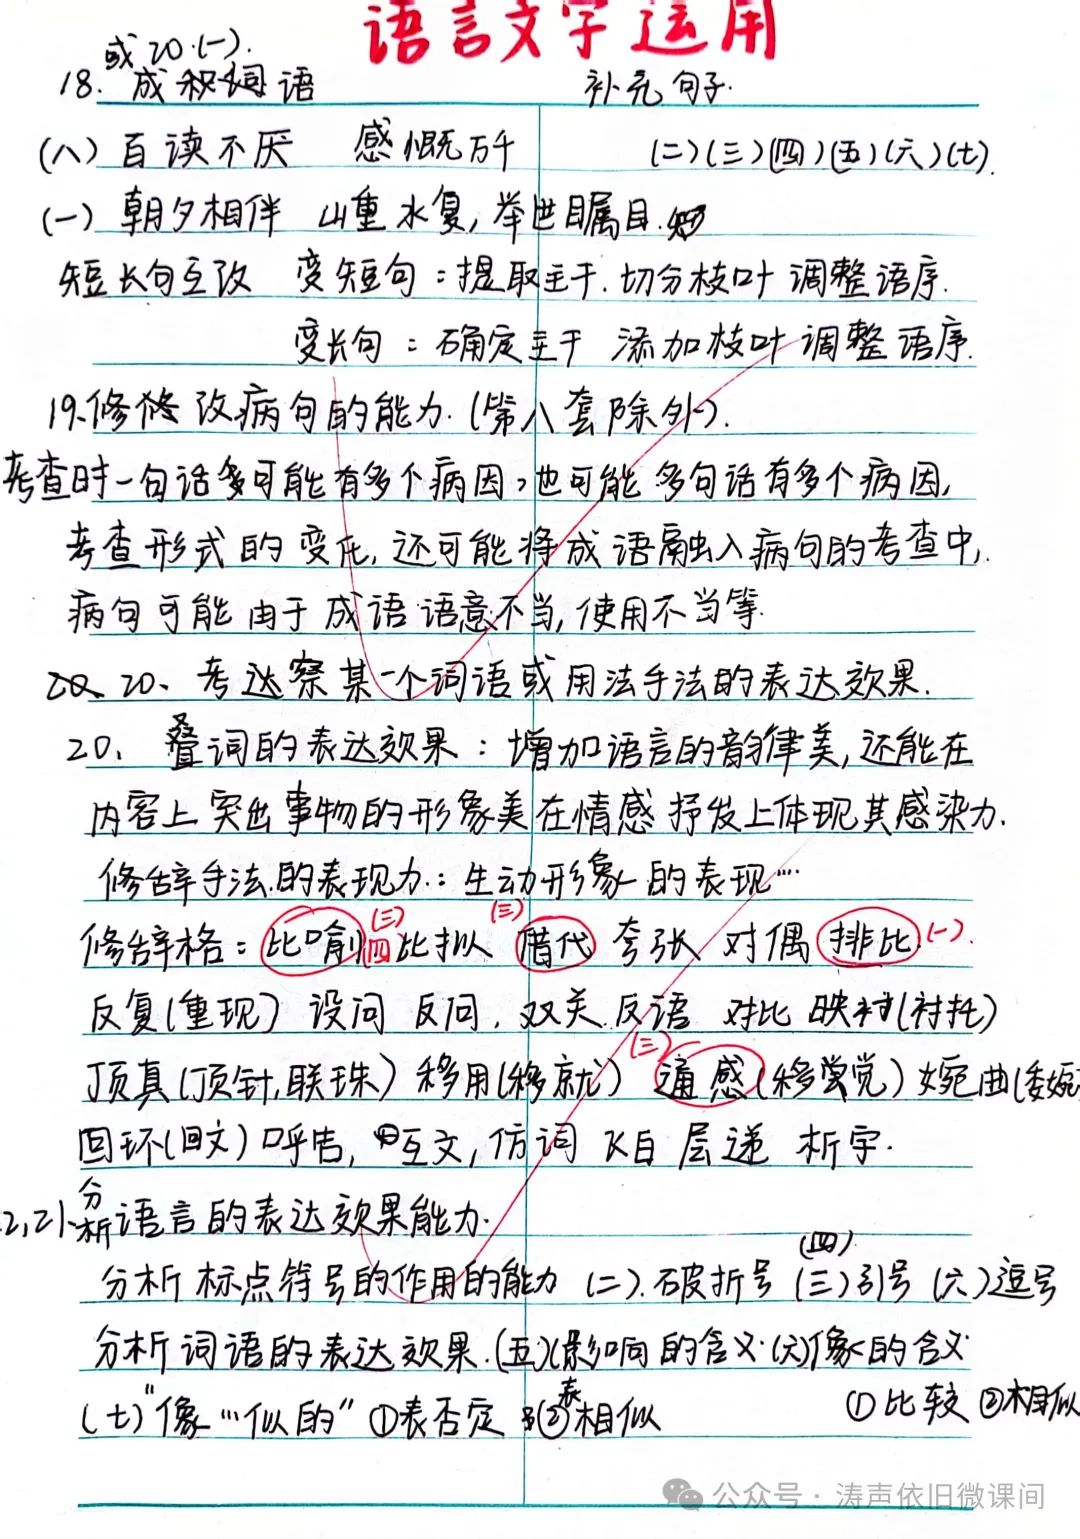 语言文字运用
或20.(一).
18. 成积词语 补充句子.
(八) 百读不厌 感慨万千 (二)(三)(四)(五)(六)(七).
(一) 朝夕相伴 山重水复, 举世瞩目.
短长句互改 变短句：提取主干. 切分枝叶 调整语序.
变长句：确定主干 添加枝叶 调整语序.
19.修改病句的能力.(第八套除外).
考查时一句话可能有多个病因,也可能多句话有多个病因,
考查形式的变化,还可能将成语融入病句的考查中,
病句可能由于成语语意不当,使用不当等.
20、考察某一个词语或用法手法的表达效果.
20、叠词的表达效果：增加语言的韵律美,还能在
内容上突出事物的形象美在情感抒发上体现其感染力.
修辞手法的表现力：生动形象的表现…
修辞格：比喻(三)四 比拟 (三)借代 夸张 对偶 排比(一).
反复(重现) 设问 反问, 双关 反语 对比 映衬(衬托)
顶真(顶针,联珠) 移用(移就) (三)通感(移觉) 婉曲(委婉
回环(回文) 呼告, 互文, 仿词 飞白 层递 析字.
2,21.分析语言的表达效果能力.
分析标点符号的作用的能力 (二).破折号 (三)(四)引号 (六)逗号
分析词语的表达效果.(五)影响的含义.(六)像的含义
(七)“像…似的” ①表否定 ②表相似 ①比较 ②相似
公众号·涛声依旧微课间